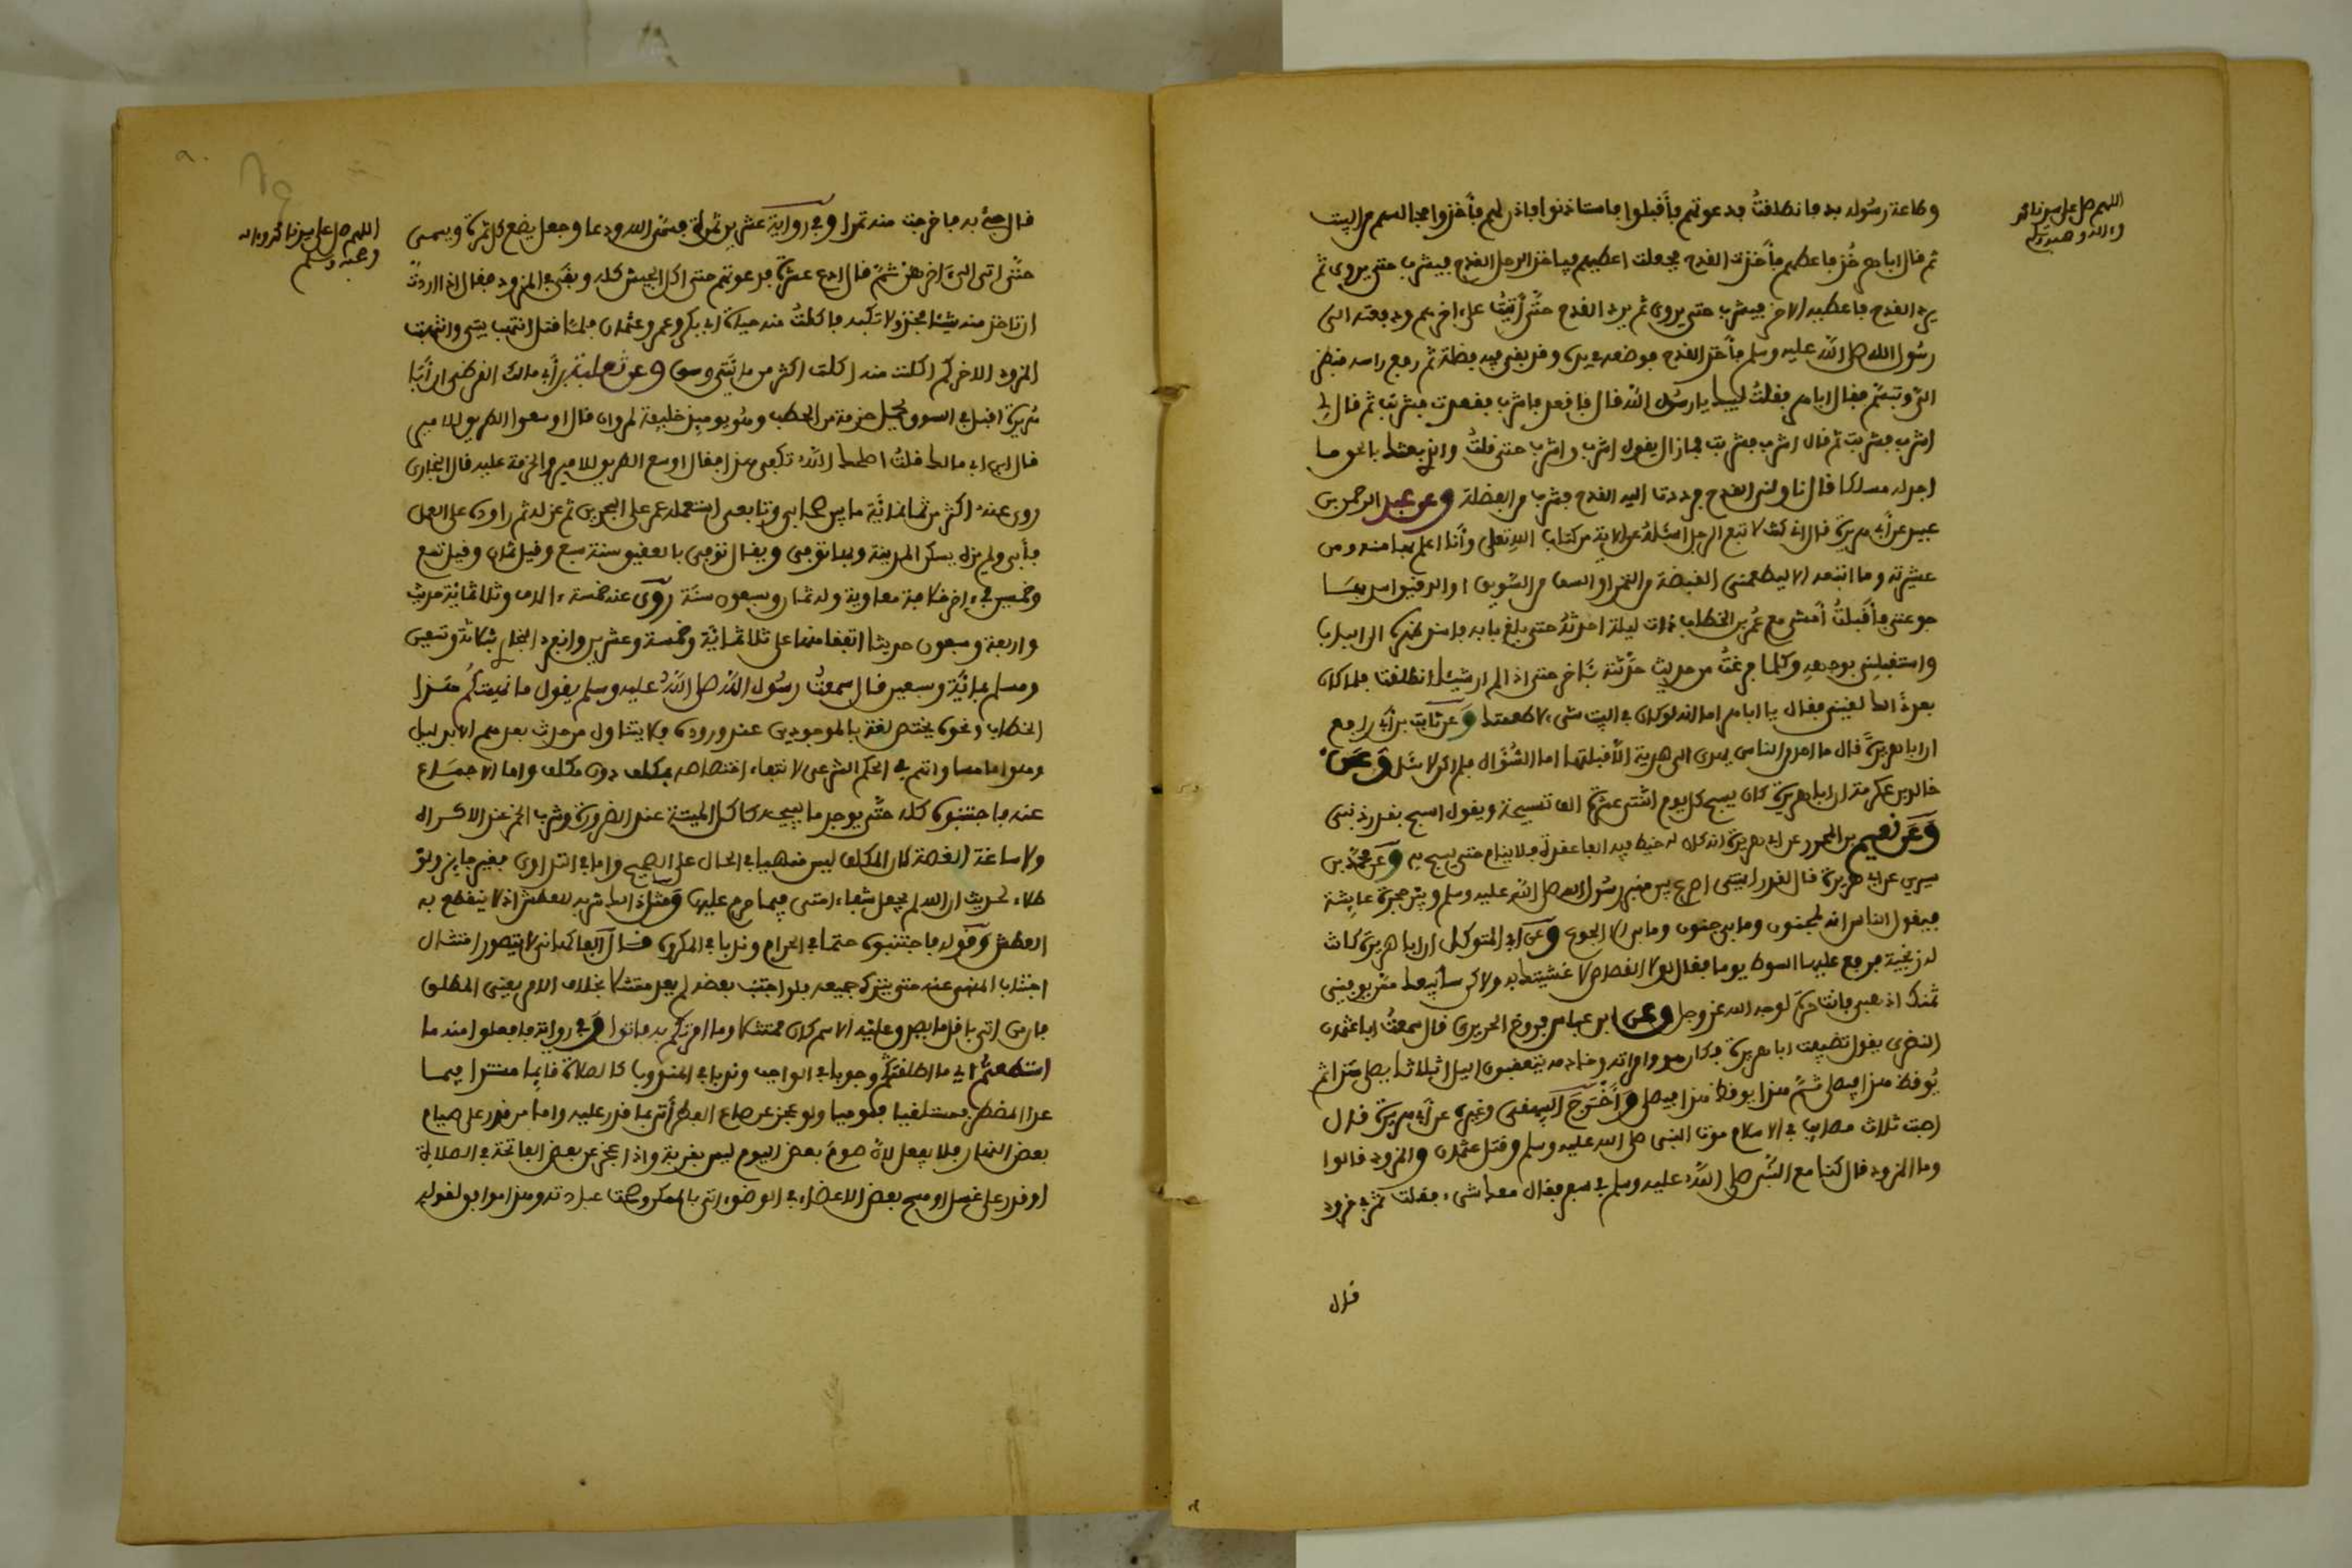 اللهم صل على سيدنا محمد
وءاله وصحبه وسلم
وطاعة رسوله بد فانطلقتُ فدعوتهم فأقبلوا فاستاذنوا فاذن لهم فأخذوا مجالسهم من البيت
ثم قال ابا هر خُذ فاعطهم فأخذت القدح فجعلت اعطيهم فياخذ الرجل القدح فيشرب حتى يروى ثم
يرد القدح فاعطيه الاخر فيشرب حتى يروى ثم يرد القدح حتَّى أتيتُ على اخرهم ودفعته الى
رسُول الله صلى الله عليه وسلم فأخذ القدح فوضعه في يده وقد بقي فيه فضلة ثم رفع راسه فنظر
اليّ وتبسّم فقال ابا هر فقلتُ لبيك يا رسُول الله قال فاقعد فاشرب فقعدت فشربت ثم قال لي
اشرب فشربت ثم قال اشرب فشربت فما زال يقول اشرب واشرب حتى قلتُ والذي بعثك بالحق ما
اجد له مسلكا قال ناولني القدح فرددت اليه القدح فشرب من الفضلة وعن عبد الرحمن بن
عبيد عن أبي هريرة قال ان كنت لاتبع الرجل اسئلهُ عن الاية من كتاب الله تعلى وأنا اعلم بها منه ومن
عشيرته وما اتبعه الا ليطعمني القبضة من التمر او السف من السّويق او الدقيق اسد بها
جوعتي فأقبلتُ أمشي مع عُمر بن الخطاب ذات ليلة احدثهُ حتى بلغ بابه فاسند ظهره الى الباب
واستقبلني بوجهه وكلما فرغتُ من حديث حدَّثته بآخر حتى اذا لم ار شيئا انطلقت فلما كان
بعد ذالك لقيني فقال يا ابا هر اما انه لوكان في البيت شيء لاطعمتك وعن ثابت بن أبي رافع
ان ابا هريرةَ قال ما احد من الناس يهدي الي هدية الا قبلتها اما السُّؤال فلم اكن لاسَل وَعَن
خالد بن عكرمة ان ابا هريرة كان يسبح كل يوم اثنتي عشرة الف تسبيحة ويقول اسبح بقدر ذنبي
وَعَن نعيم بن المحرر عن ابي هريرة انه كان له خيط فيه الفا عقدة فلا ينام حتى يسبح به وعن محمَّد بن
سيرين عن ابي هريرة قال لقد رايتني اصرع بين منبر رسُول الله صلى الله عليه وسلم وبين حجرة عايشة
فيقول الناس انه لمجنون وما بي جنون وما بي الا الجوع وعن أبي المتوكل ان ابا هريرة كانت
له زنجية فرفع عليها السوط يوما فقال لولا القصاص لاغشيتك به ولاكن سأبيعك ممّن يوفيني
ثمنك اذهبي فانت حرة لوجه الله عز وجل وعن ابن عباس بن فروخ الحريري قال سمعتُ ابا عثمان
النهدي يقول تضيفت ابا هريرة فكان هو وامراته وخادمه يتعقبون اليل اثلاثا يصلي هذا ثم
يُوقظ هذا فيصلي ثُمَّ هذا يوقظ هذا فيصلي وَأَخْرَجَ البيهقي وغيره عن أبي هريرة قال
اصبت ثلاث مصايب في الاسلام موت النبي صلى الله عليه وسلم وقتل عثمان والمزود قالوا
وما المزود قال كنا مع النَّبي صلى الله عليه وسلم في سفر فقال معك شيء فقلت تمر في مزود
قال
اللهم صل على سيدنا محمد وءاله
وصحبه وسلم
قال جئ به فاخرجت منه تمرا وفي رواية عشرين تمرة فمسَّ الله ودعا وجعل يضع كل تمرة ويسمي
حتَّى اتى الى اخرهنّ ثمَّ قال ادع عشرة فدعوتهم حتى اكل الجيش كله وبقي في المزود فقال اذا اردتَ
ان تاخذ منه شيئا فخذ ولا تكبه فاكلتُ منه حياة ابي بكر وعمر وعثمان فلمّا قتل انتهب بيتي وانتهبت
المزود الا اخبركم اكلت منه اكلت اكثر من مائتي وسق وعن ثعلبة بن أبي مالك القرظي ان أبا
هُريرة اقبل في السوق يحمل حزمة من الحطب وهُو يوميذ خليفة لمروان قال اوسعوا الطريق للامير
قال ابن ابي مالك قلتُ اصلحك اللهُ تكفى هذا فقال اوسع الطريق للامير والحزمة عليه قال البخاري
روى عنه اكثر من ثمانمائة ما بين صحابي وتابعي استعمله عمر على البحرين ثم عزله ثم راوده على العمل
فأبى ولم يزل يسكن المدينة وبها توفي ويقال توفي بالعقيق سنة سبع وقيل ثمان وقيل تسع
وخمسين في اخر خلافة معاوية وله ثمان وسبعون سنَة رُوِيَ عنه خمسة ءالاف وثلاثمائة حديث
واربعة وسبعون حديثا اتفقا منها على ثلاثمائة وخمسة وعشرين وانفرد البخاري بثلاثة وتسعين
ومسلم بمائة وسبعين قال سمعتُ رسُول الله صلى اللهُ عليه وسلم يقول ما نهيتكُم هَذا
الخطاب ونحوه يختص لغة بالموجودين عند وروده ولا يتناول من حدث بعدهم الا بدليل
وهو اما مساواتهم في الحكم الشرعي لانتفاء اختصاصه بمكلف دون مكلف واما الاجماع
عنه فاجتنبوه كله حتَّى يوجد ما يبيحه كاكل الميتة عند الضرورة وشرب الخمر عند الاكراه
ولاساغة الغصة لان المكلف ليس منهيا في الحال على الصحيح واما في التداوي فغير جايز ولو
طلاء لحديث ان الله لم يجعل شفاء امتي فيما حرم عليها وَمثل ذالك شربه للعطش اذ لا ينقطع به
العطش وَقوله فاجتنبوه حتما في الحرام وندبا في المكروه قال الفاكهاني لا يتصور امتثال
اجتناب المنهي عنه حتى يترك جميعه فلو اجتنب بعضه لم يعد ممتثلا بخلاف الامر يعني المطلق
فان من اتى باقل ما يصدق عليه الاسم كان ممتثلا وما امرتكم به فاتوا وَفي رواية فافعلوا منه ما
استطعتُم اي ما اطقتم وجوبا في الواجب وندبا في المندوب كالصلاة قايما مستندا فيما
عدا المضطر فمستلقيا فموميا ولو عجز عن صاع الفطر أتى بما قدر عليه واما من قدر على صيام
بعض النهار فلا يفعل لان صومَ بعض اليوم ليس بقربة واذا عجز عن بعض الفاتحة في الصلاة
او قدر على غسل او مسح بعض الاعضاء في الوضوء اتى بالممكن وصحت عبادته وهذا موافق لقوله